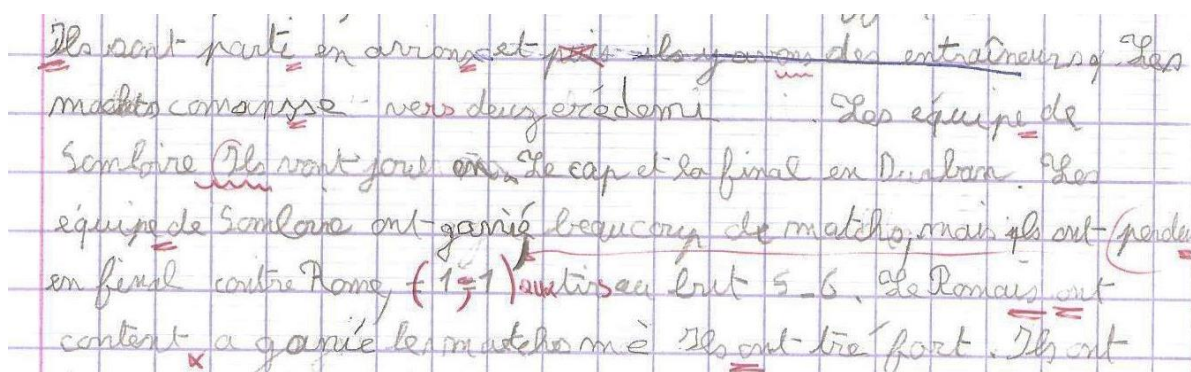 Ils sont parti en avrions et puis ils y avons des entraîneurs. Les
matchs comansse vers deuz érédemi Les équipe de
Somloire Ils vont joué en Le cap et la final en Durban. Les
équipe de Somloire ont ganié beaucoup de matchs, mais ils ont perdu
en final contre Rome, (1-1) aux tirs au but 5-6. Le Romais ont
content a ganié les matchs mè Ils ont trè fort. Ils ont